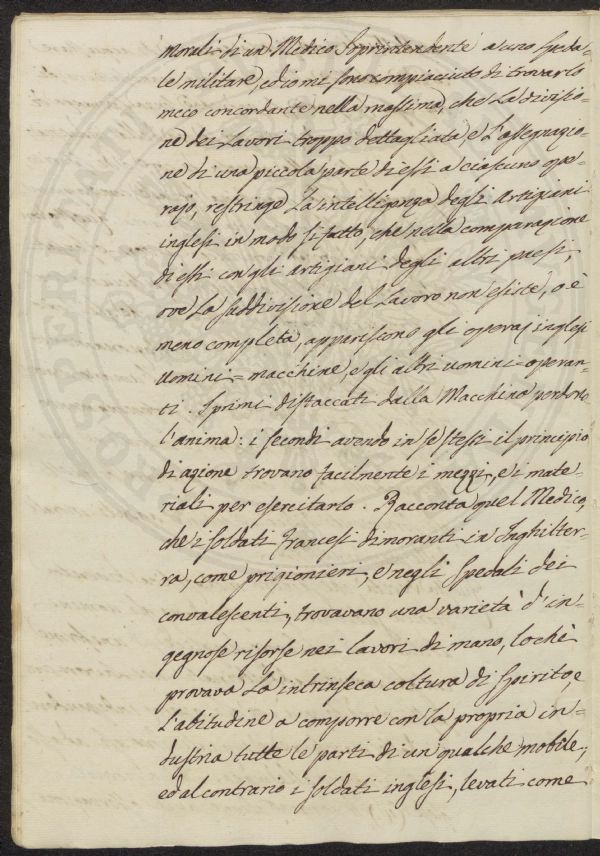 morali di un Medico Soprintendente a uno Speda-
le militare, ed io mi sono compiaciuto di trovarlo
meco concordante nella massima, che la divisio-
ne dei Lavori troppo dettagliata, e l'assegnazio-
ne di una piccola parte di essi a ciascuno ope-
rajo, restringe la intelligenza degli Artigiani
inglesi in modo sì fatto, che nella comparazione
di essi con gli artigiani degli altri paesi,
ove la suddivisione del Lavoro non esiste, o è
meno completa, appariscono gli operaj inglesi
uomini = macchine, e gli altri uomini operan-
ti. I primi distaccati dalla Macchina perdono
l'anima: i secondi avendo in se stessi il principio
di azione trovano facilmente i mezzi, e i mate-
riali per esercitarlo. Racconta quel Medico,
che i soldati francesi dimoranti in Inghilter-
ra, come prigionieri, e negli Spedali dei
convalescenti, trovavano una varietà d'in-
gegnose risorse nei lavori di mano, lochè
provava la intrinseca coltura di Spirito, e
l'abitudine a comporre con la propria in-
dustria tutte le parti di un qualche mobile;
ed al contrario i soldati inglesi, levati come